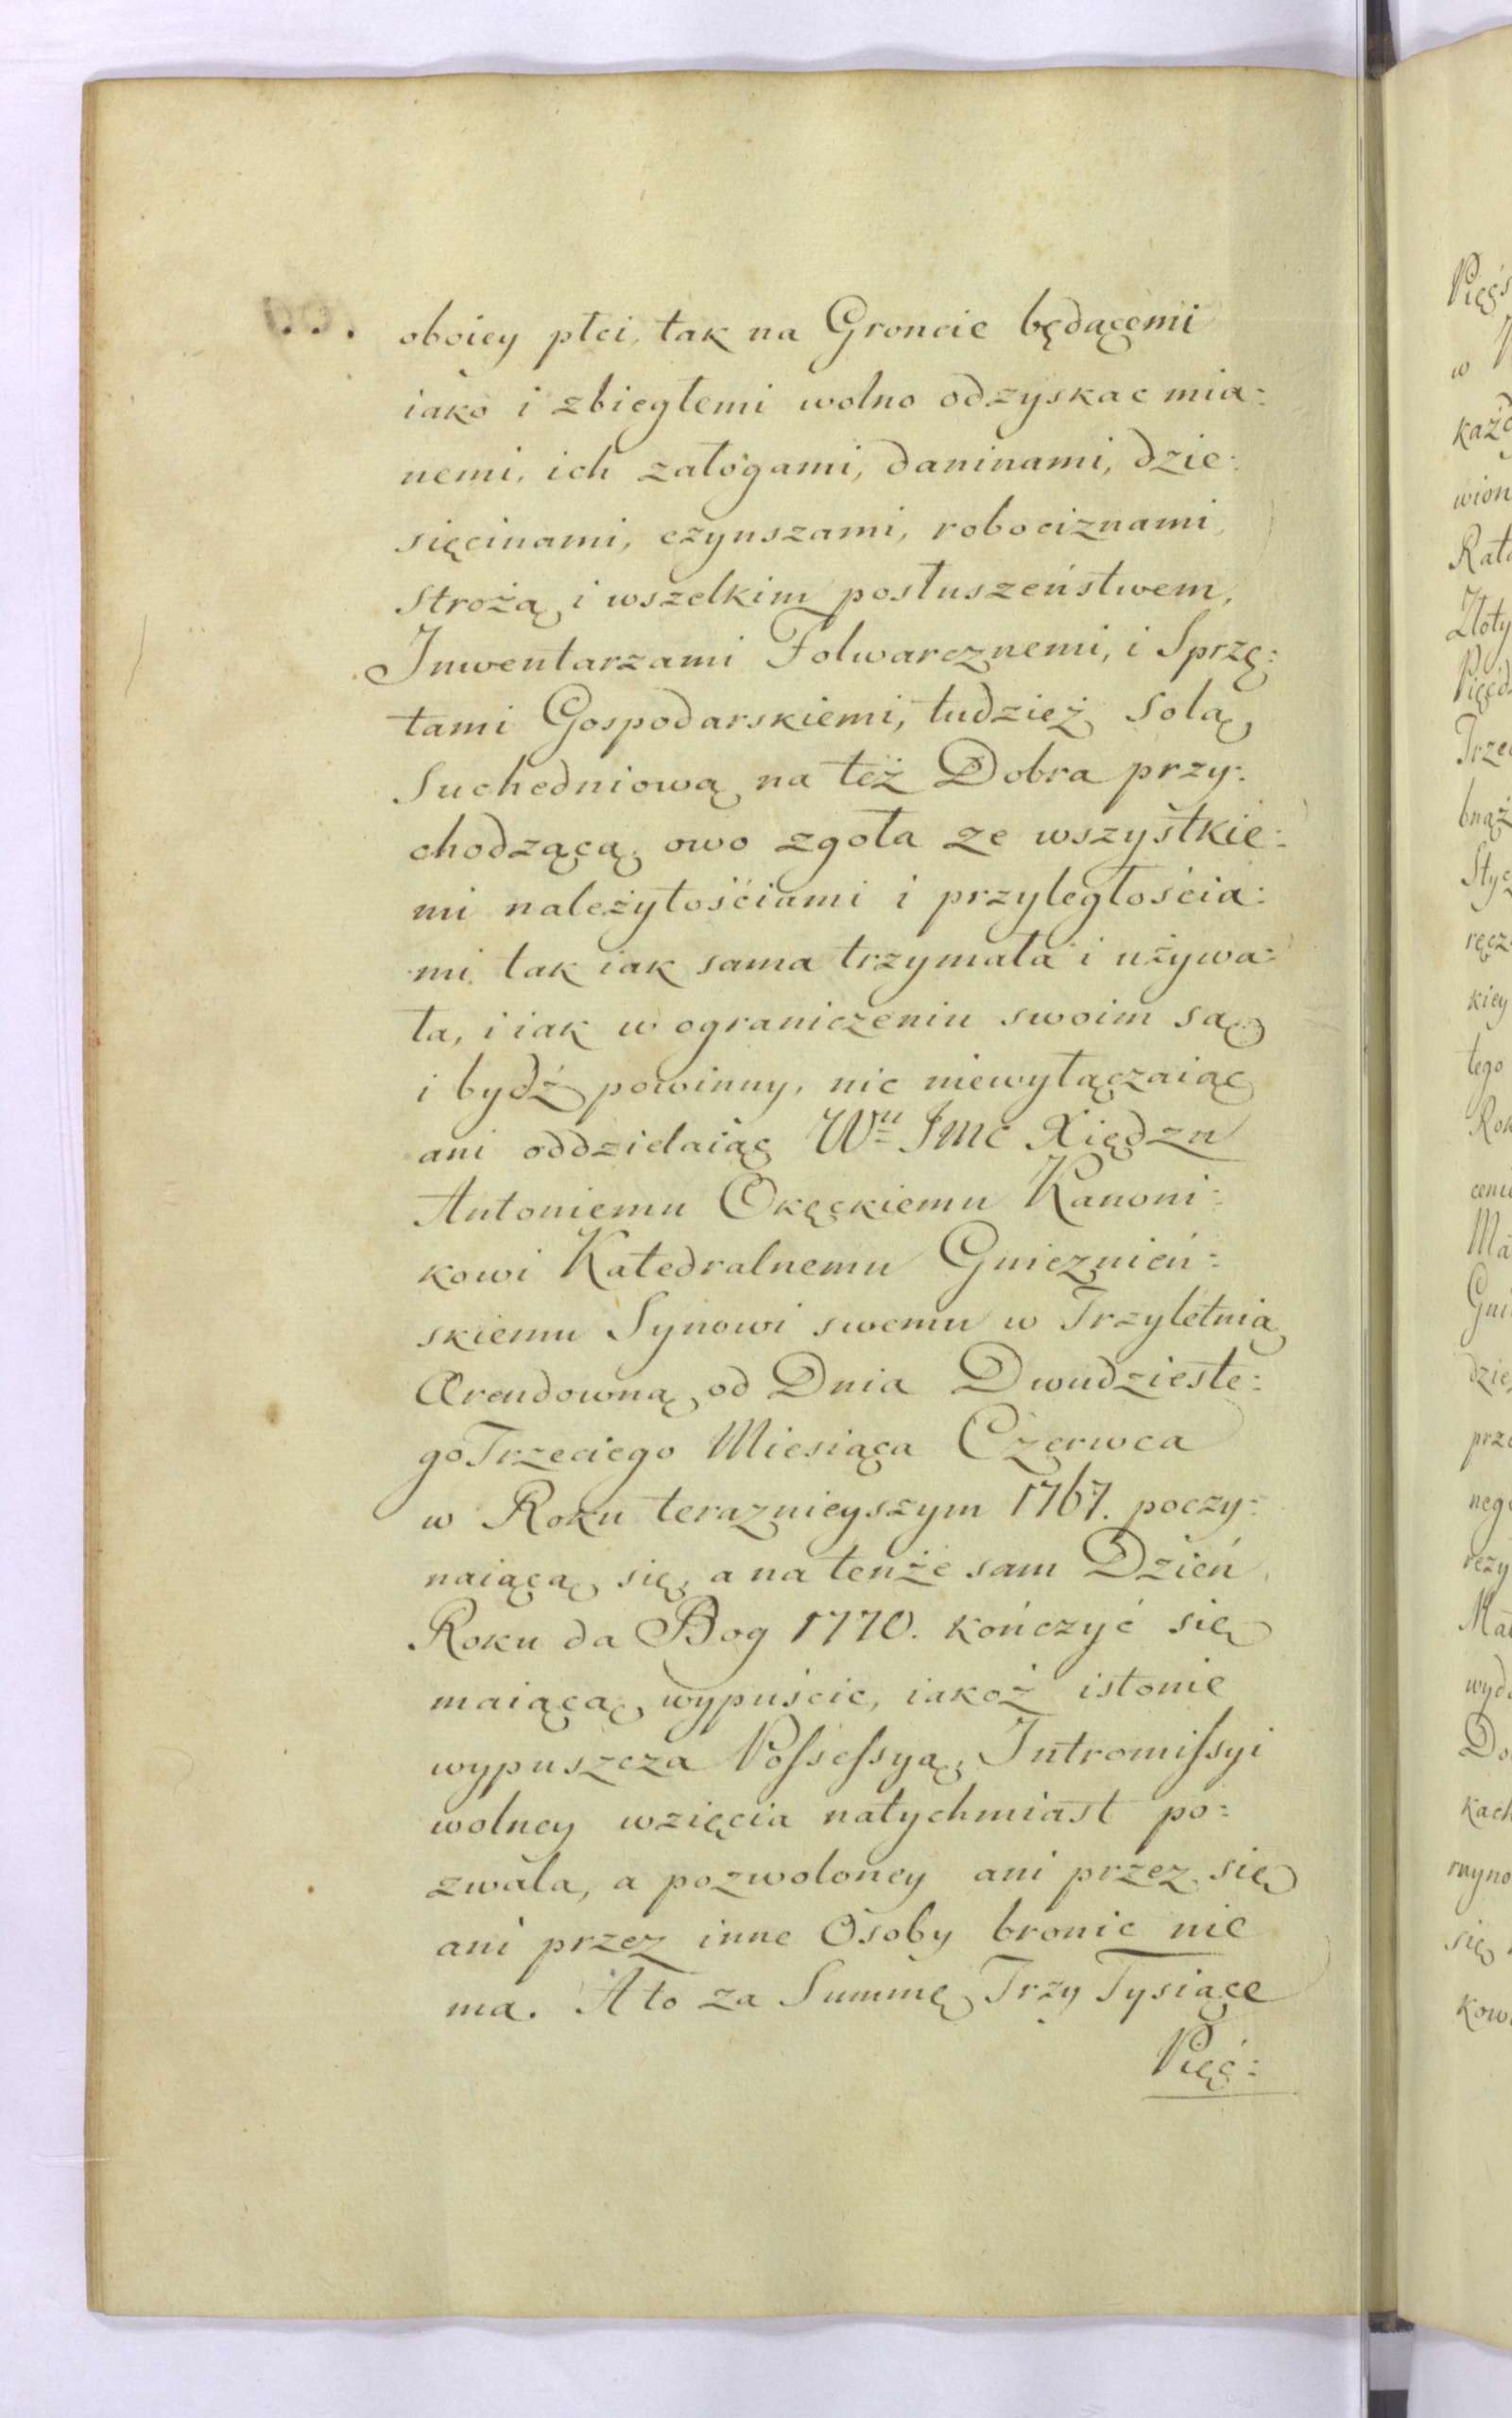 oboiey płci, tak na Groncie będącemi
iako i zbiegłemi wolno odzyskac mia:
nemi, ich załogami, daninami, dzie:
sięcinami, czynszami, robociznami,
strożą i wszelkim posłuszeństwem,
Inwentarzami Folwarcznemi, i Sprzę:
tami Gospodarskiemi, tudzież Solą
Suchedniową na też Dobra przy:
chodzącą, owo zgoła ze wszystkie:
mi należytościami i przyległościa:
mi tak iak sama trzymała i używa:
ła, i iak w ograniczeniu swoim są
i bydź powinny, nic niewyłączaiąc
ani oddzielaiąc Wu Jmc Xiędzu
Antoniemu Okęckiemu Kanoni:
kowi Katedralnemu Gnieznień:
skiemu Synowi swemu w Trzyletnią
Arendowną od Dnia Dwudzieste:
go Trzeciego Miesiąca Czerwca
w Roku teraznieyszym 1767. poczy:
naiącą się, a na tenże sam Dzień
Roku da Bog 1770. kończyć się
maiącą wypuścic, iakoż istonie
wypuszcza Possessyą, Intromissyi
wolney wzięcia natychmiast po:
zwala, a pozwoloney ani przez się
ani przez inne Osoby bronic nie
ma. A to za Summę Trzy Tysiące
Pięć:
Pięćs
w
każd
wion
Rata
Złoty
Pięćd
Trze
bnąż
Styc
ręcz
kiey
tego
Rok
cemu
Ma
Gni
dzie
prze
nego
rezy
Ma
wyd
Do
kach
rmyno
się
kow